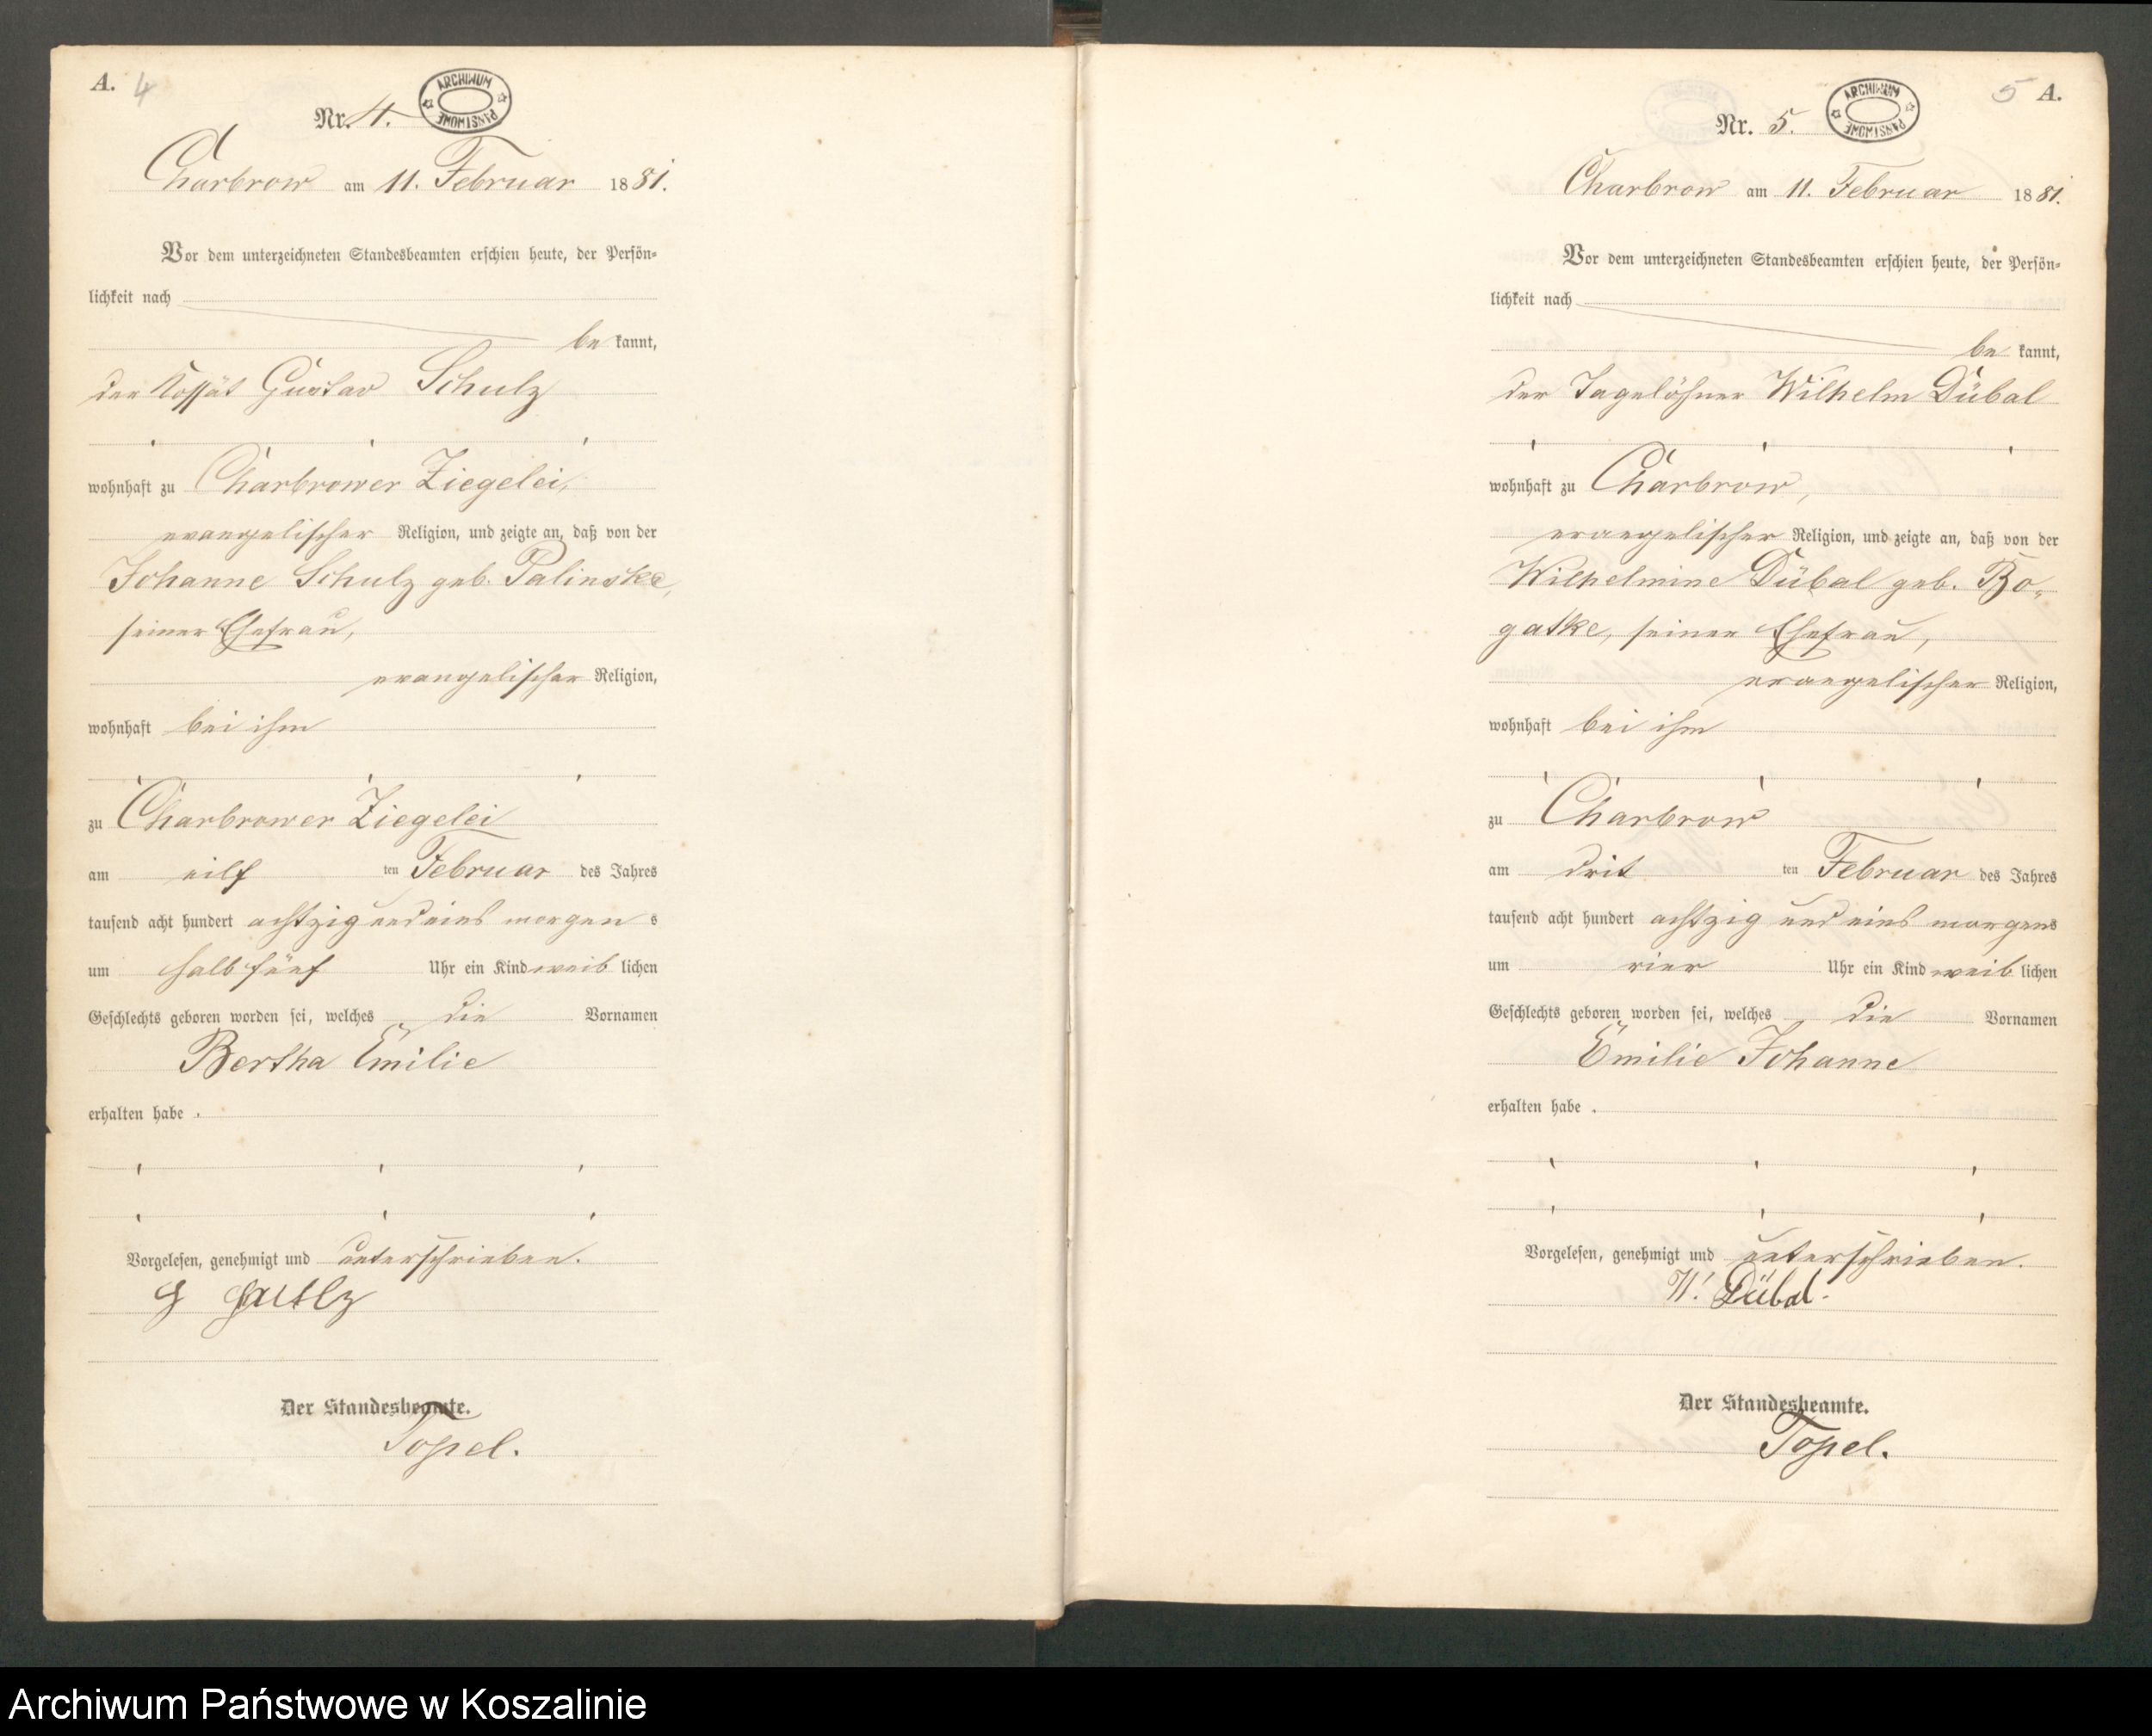 A. 4
Nr. 4.
ARCHIWUM PAŃSTWOWE
Charbrow am 11. Februar 1881.
Vor dem unterzeichneten Standesbeamten erschien heute, der Persön-
lichkeit nach
be kannt,
der Kossät Gustav Schulz
wohnhaft zu Charbrower Ziegelei,
evangelischer Religion, und zeigte an, daß von der
Johanne Schulz geb. Palinske,
seiner Ehefrau,
evangelischer Religion,
wohnhaft bei ihm
zu Charbrower Ziegelei
am eilf ten Februar des Jahres
tausend acht hundert achtzig und eins morgen s
um halb fünf Uhr ein Kind weib lichen
Geschlechts geboren worden sei, welches die Vornamen
Bertha Emilie
erhalten habe .
Vorgelesen, genehmigt und unterschrieben.
G Schulz
Der Standesbeamte.
Topel.
5 A.
Nr. 5.
ARCHIWUM PAŃSTWOWE
Charbrow am 11. Februar 1881.
Vor dem unterzeichneten Standesbeamten erschien heute, der Persön-
lichkeit nach
be kannt,
der Tagelöhner Wilhelm Dübal
wohnhaft zu Charbrow,
evangelischer Religion, und zeigte an, daß von der
Wilhelmine Dübal geb. Bo-
gatke, seiner Ehefrau,
evangelischer Religion,
wohnhaft bei ihm
zu Charbrow
am drit ten Februar des Jahres
tausend acht hundert achtzig und eins morgens
um vier Uhr ein Kind weib lichen
Geschlechts geboren worden sei, welches die Vornamen
Emilie Johanne
erhalten habe .
Vorgelesen, genehmigt und unterschrieben.
W. Dübal.
Der Standesbeamte.
Topel.
Archiwum Państwowe w Koszalinie